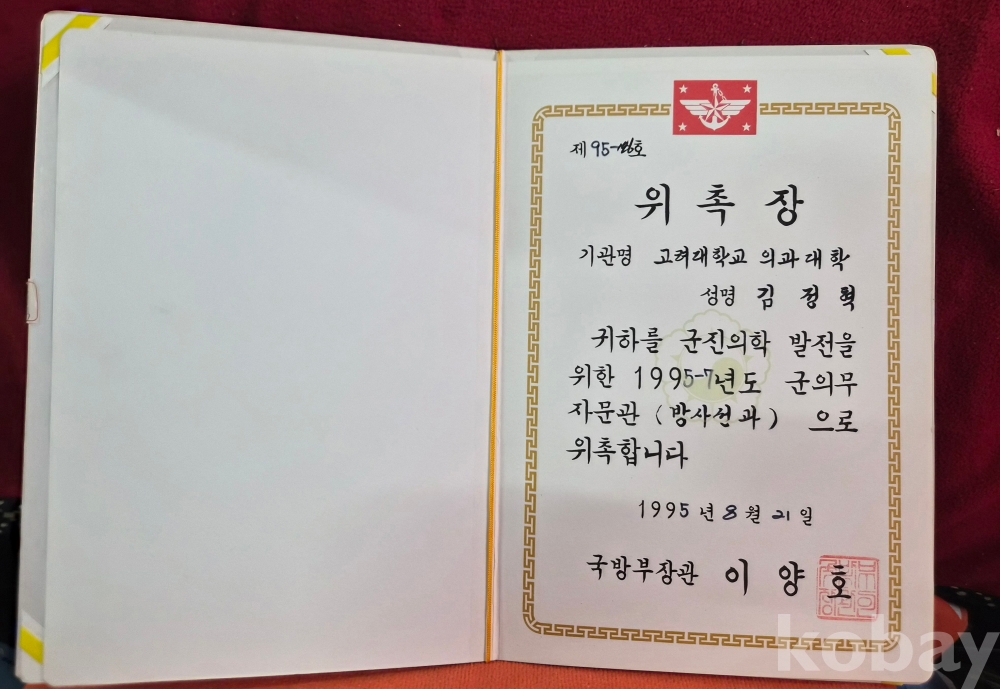 제 95- 호
위 촉 장
기관명 고려대학교 의과대학
성명 김 정 혁
귀하를 군진의학 발전을
위한 1995-7년도 군의무
자문관 (방사선과) 으로
위촉합니다
1995 년 8 월 21 일
국방부장관 이 양 호
kobay